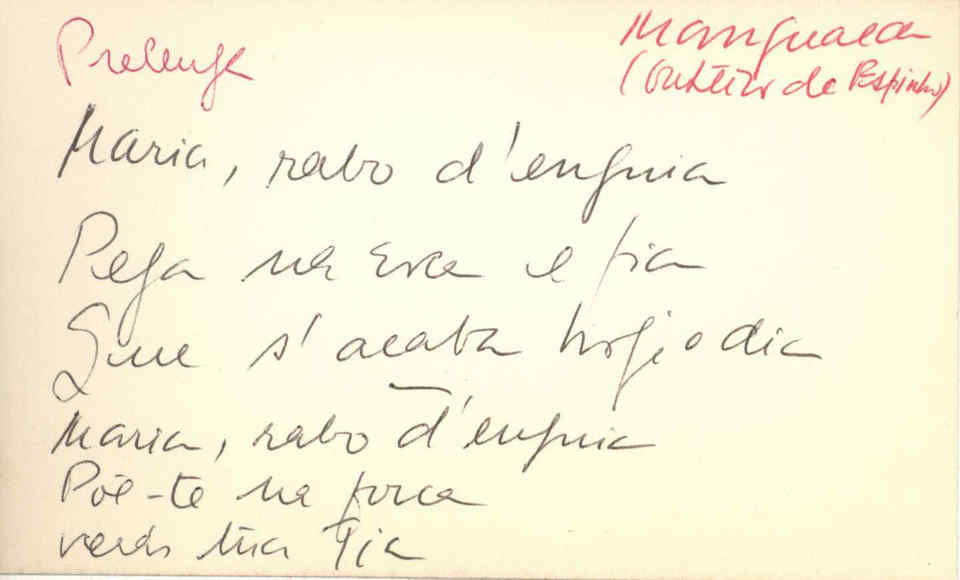 Prelenga
Mangualde
(Outeiro de Espinho)
Maria, rabo d'enguia
Pega na roca e fia
Que s'acaba hoje o dia
—
Maria, rabo d'enguia
Põe-te na forca
tua tia